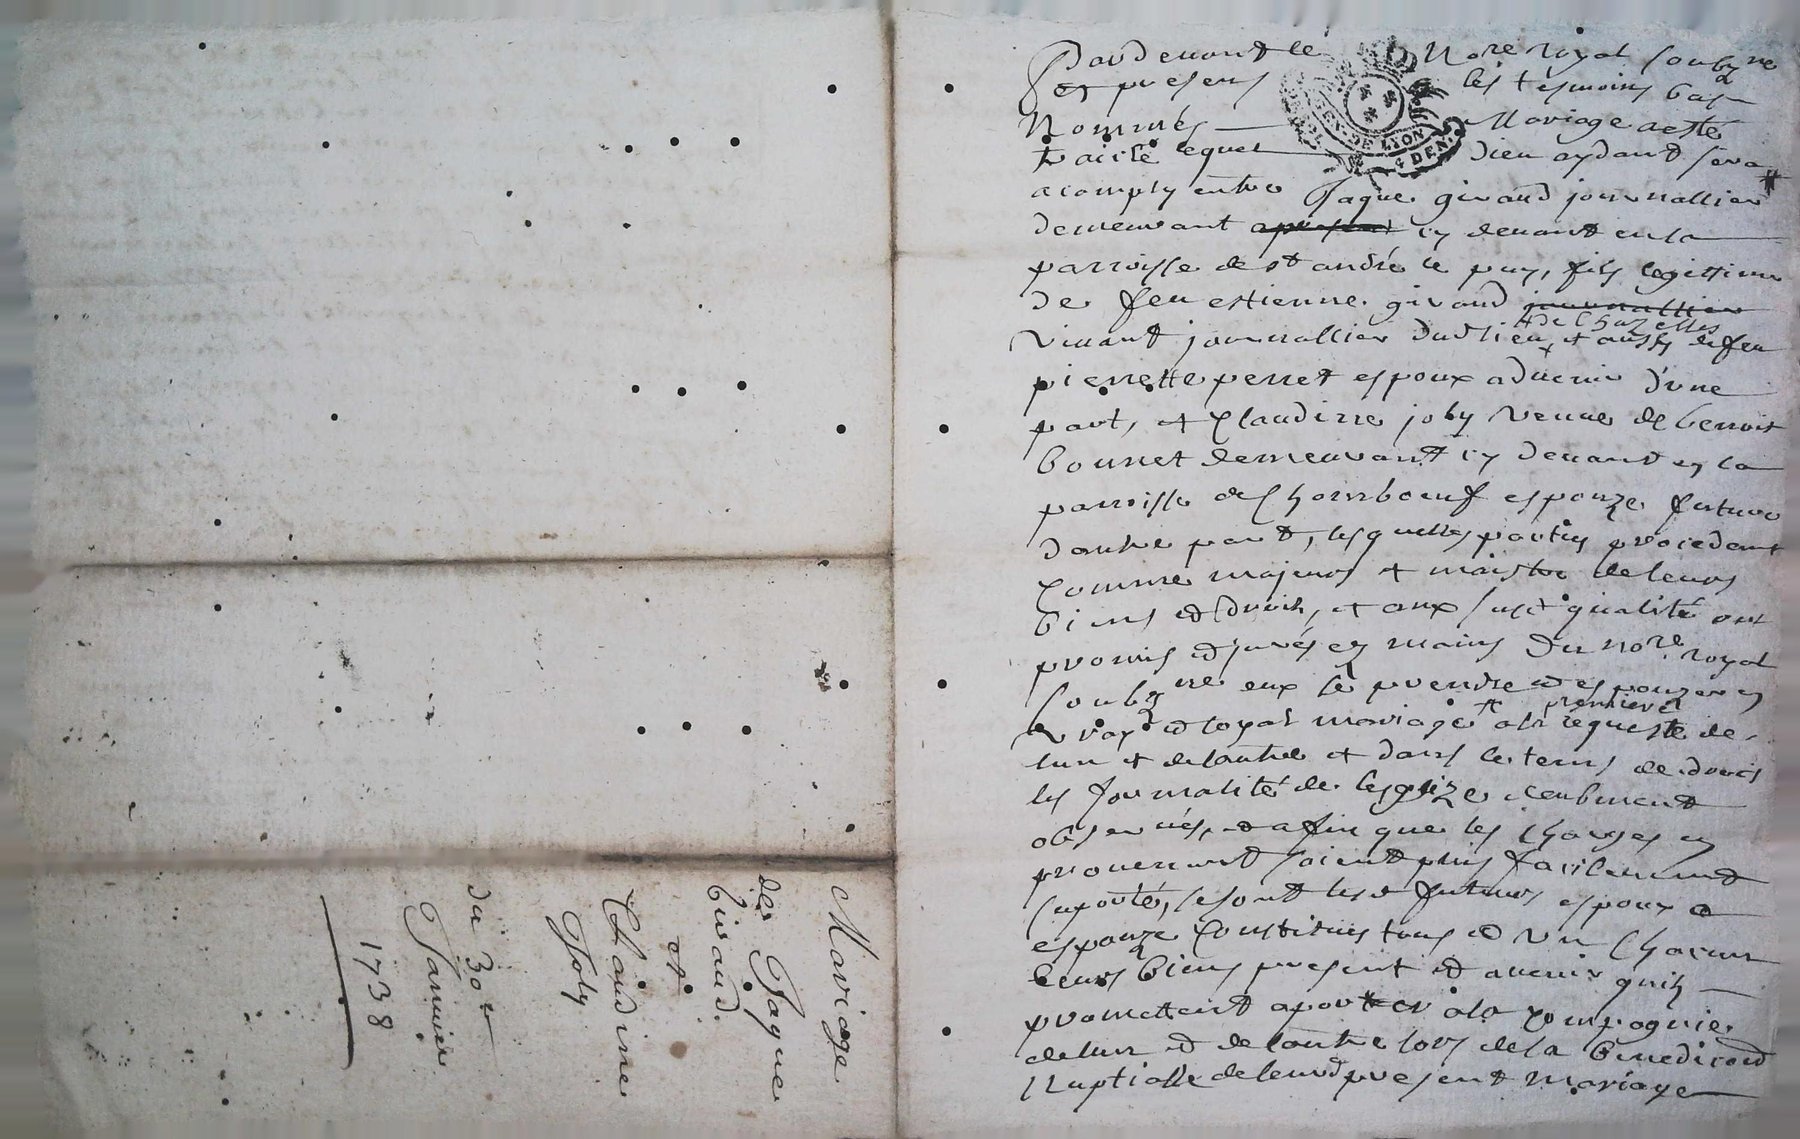 Mariage
de Jaque
Giraud.
et
Claudine
Joly
du 30e
Janvier
1738
Pardevant le Nore royal soubzne
et presens les tesmoins bas
Nommés Mariage a esté
traicté lequel Dieu aydant sera
acomply entre Jaque giraud journallier
demeurant cy devant en la
parroisse de st andré le puy, fils legittime
de feu estienne giraud journallier
de Chazelles
vivant journallier dudt lieu et aussy de feu
pierrette perret espoux advenir d'une
part, et Claudine joly veuve de benoit
bonnet demeurant cy devant en la
parroisse de Chambœuf espouze future
d'autre part, lesquelles parties procedant
comme majeurs et maistre de leurs
biens et droits, et aux susd qualité ont
promis et jurés es mains du nore royal
soubzne eux se prendre et espouzer en
premiere
vray et loyal mariage a la requeste de
lun et de lautre et dans le tems de droit
les formalité de lesglize deubment
observés, et afin que les charges en
provenant soient plus facilement
suporté, se sont lesd futurs espoux et
espouze constitués tous et un chacun
leurs biens present et avenir quils
promettent aporter a la compagnie
de lun et de lautre lors de la benediction
Nuptialle de leurd present mariage
EN. DE LION
DEN.